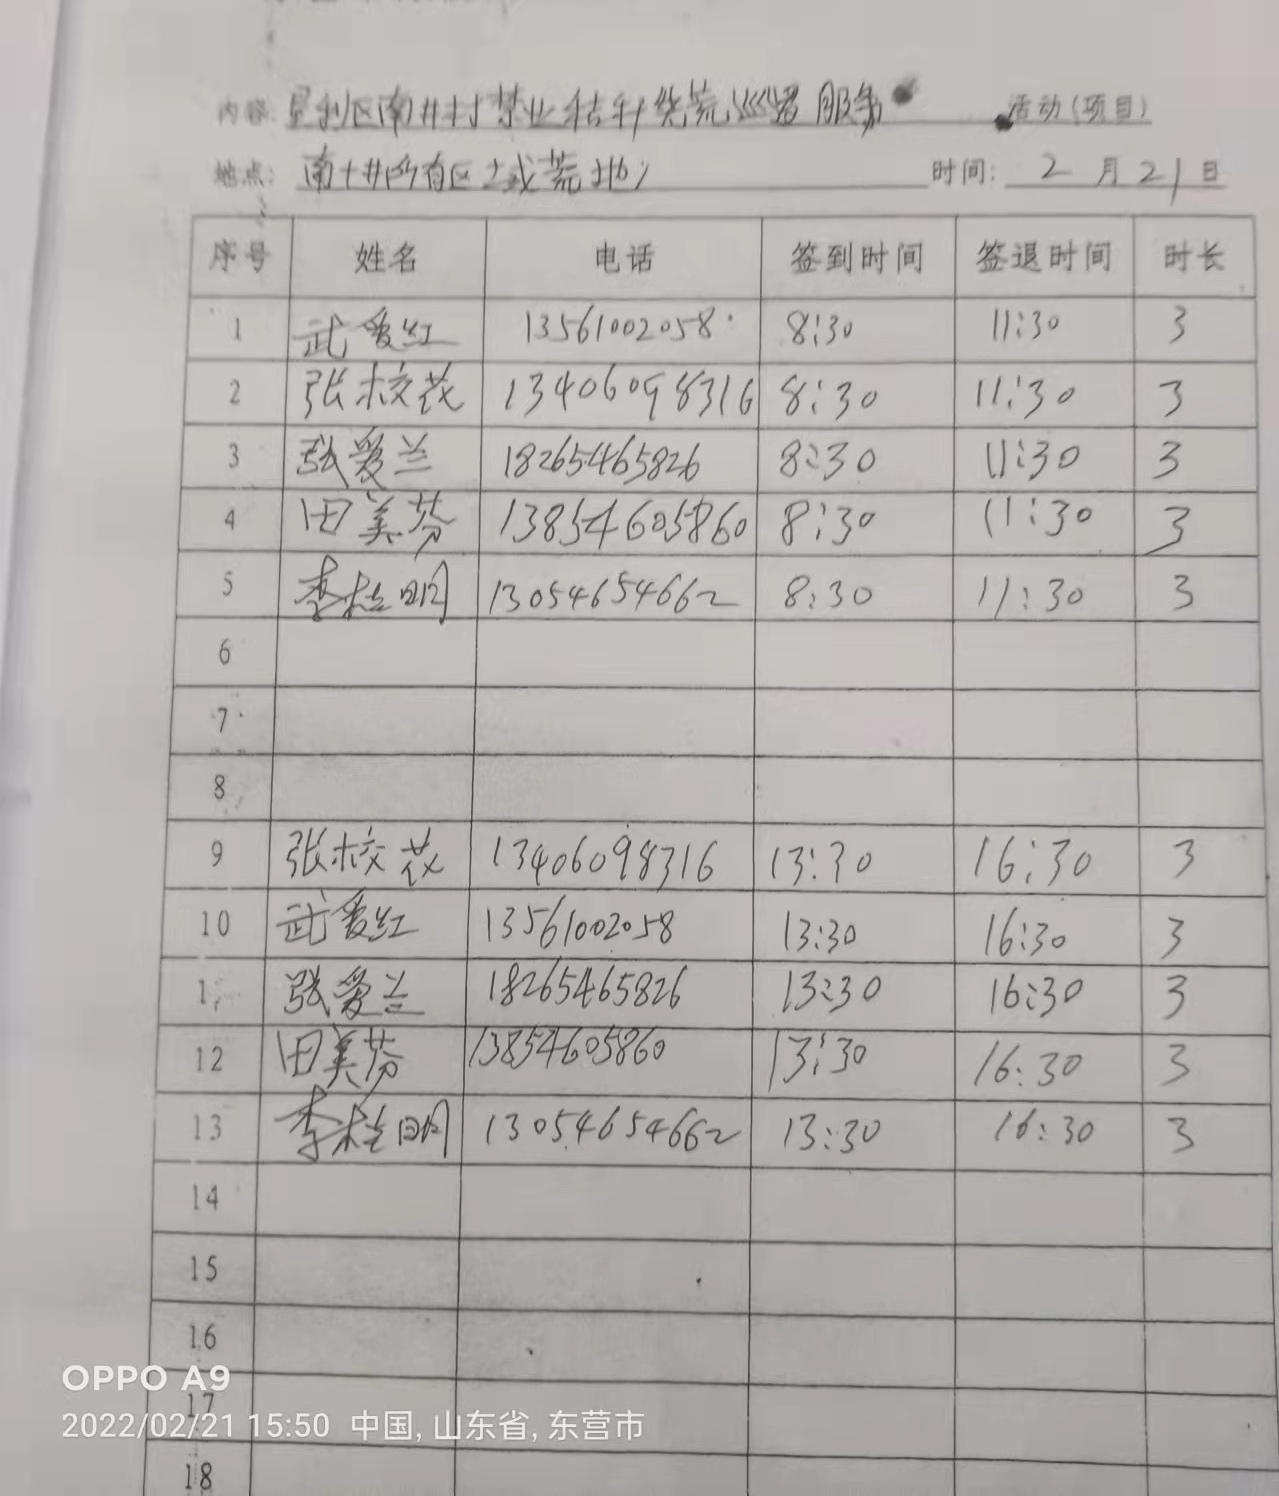 内容: 垦利区南井村禁业秸秆烧荒巡逻服务 活动(项目)
地点: 南十井所有区域荒地 时间: 2月21日
序号 姓名 电话 签到时间 签退时间 时长
1 武爱红 13561002058 8:30 11:30 3
2 张校花 13406098316 8:30 11:30 3
3 张爱兰 18265465826 8:30 11:30 3
4 田美芬 13854605860 8:30 11:30 3
5 李桂明 13054654662 8:30 11:30 3
6
7
8
9 张校花 13406098316 13:30 16:30 3
10 武爱红 13561002058 13:30 16:30 3
1 张爱兰 18265465826 13:30 16:30 3
12 田美芬 13854605860 13:30 16:30 3
13 李桂明 13054654662 13:30 16:30 3
14
15
16
OPPO A9
17
2022/02/21 15:50 中国, 山东省, 东营市
18